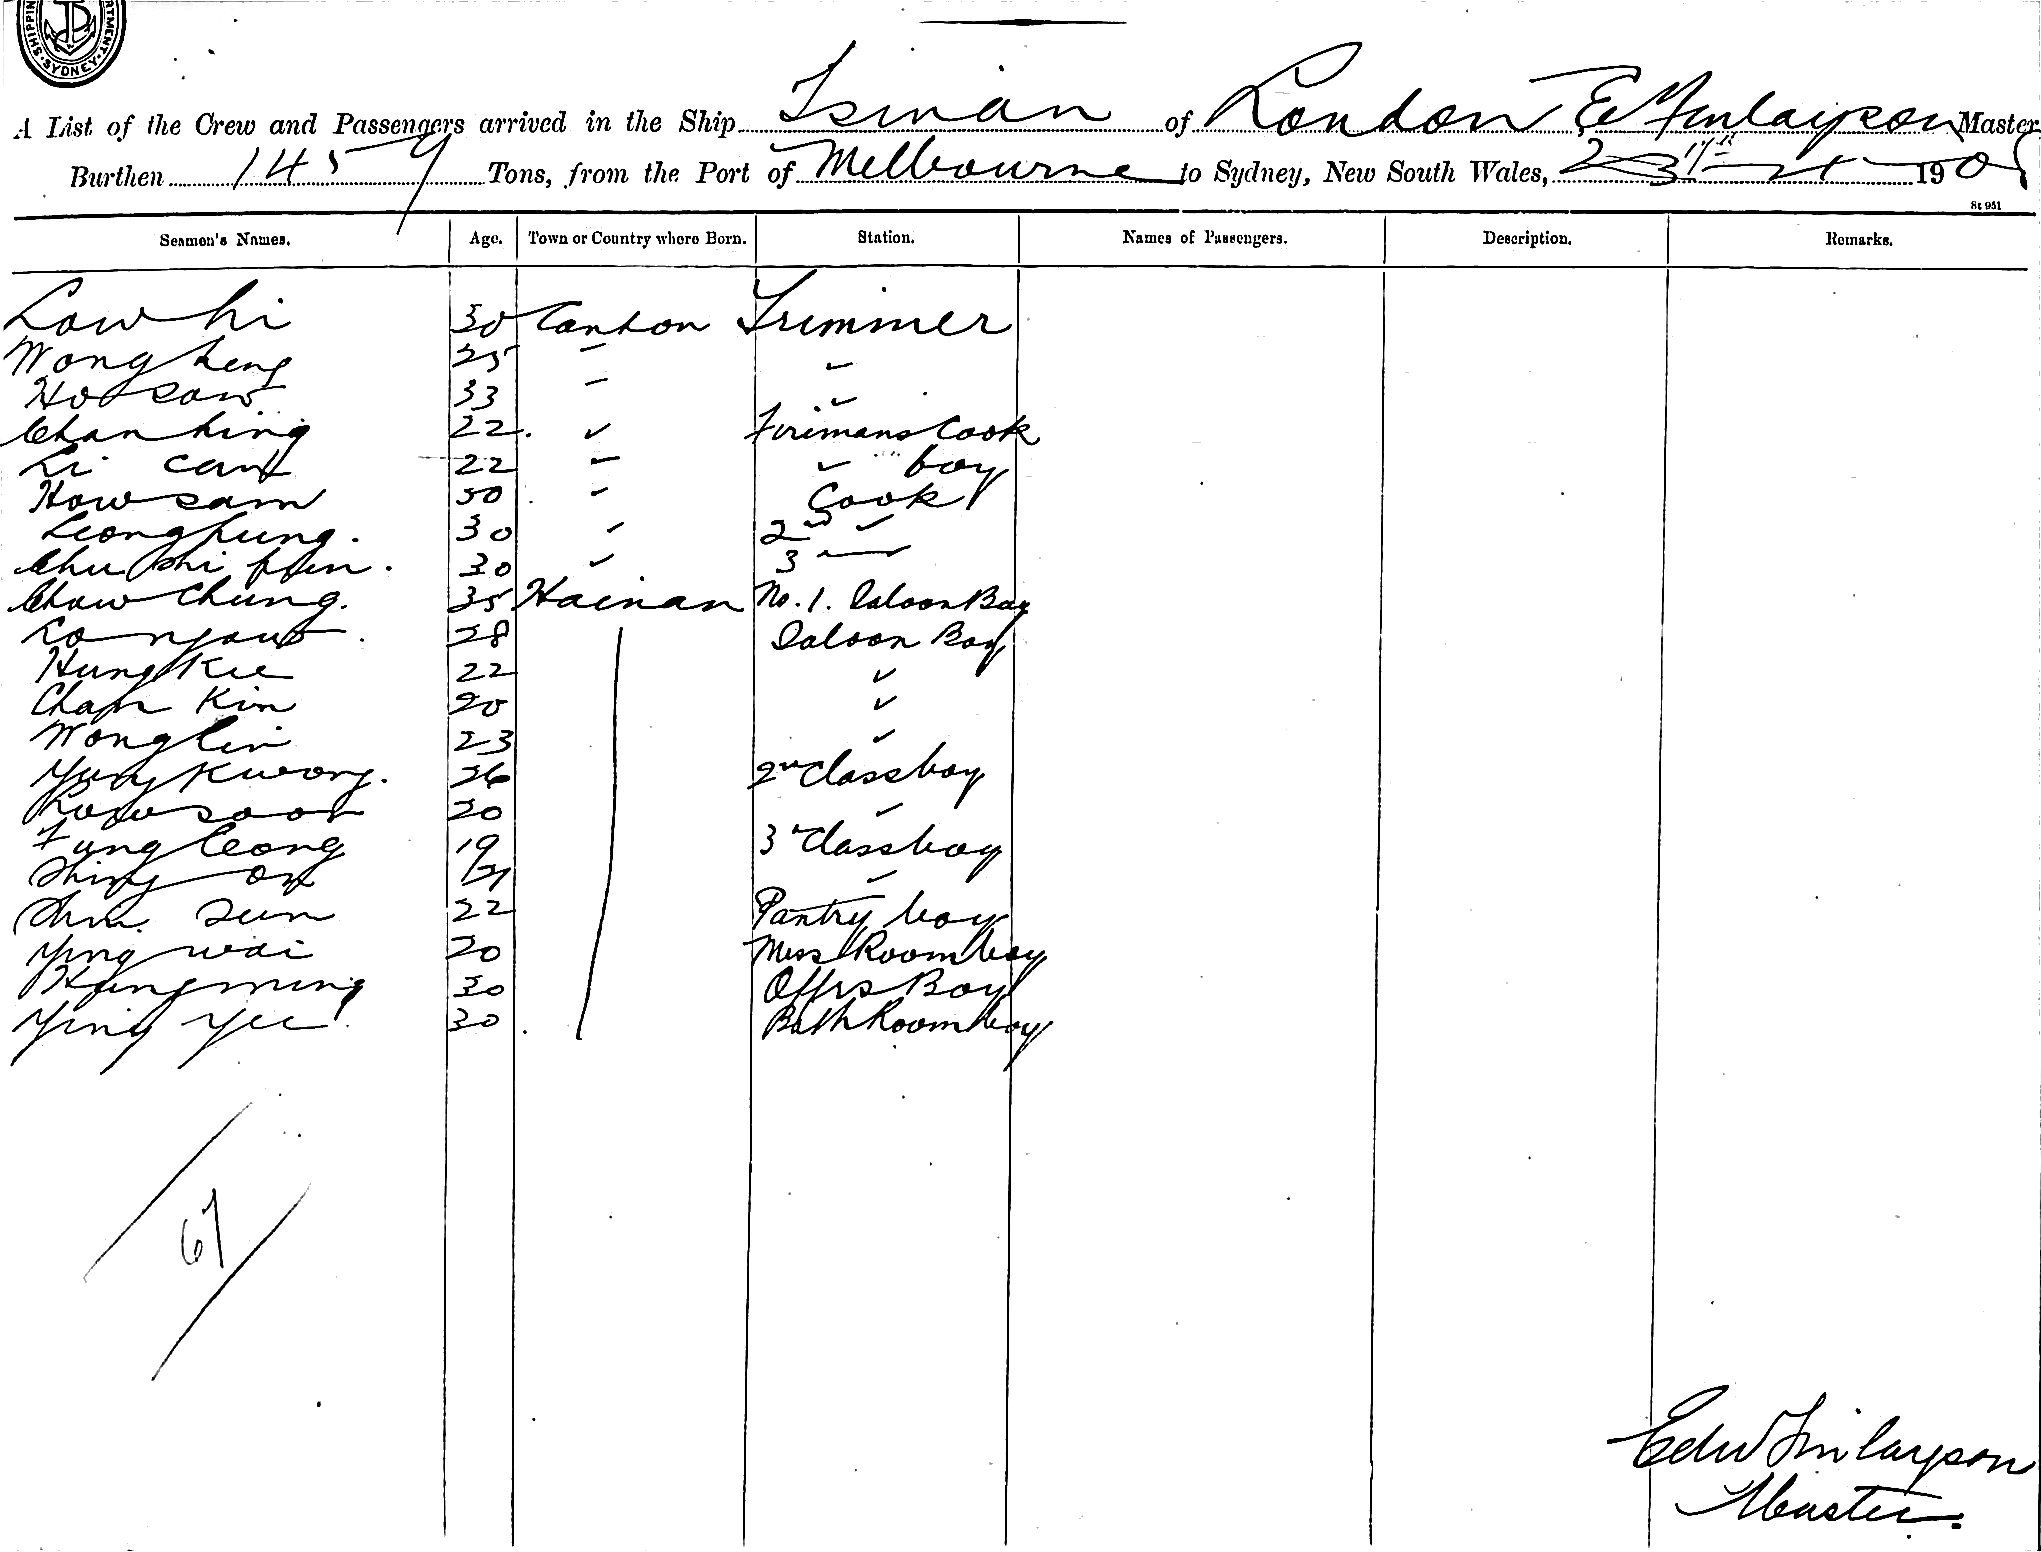 SHIPPING DEPARTMENT SYDNEY
A List of the Crew and Passengers arrived in the Ship Tsinan of London E Finlayson Master
Burthen 1459 Tons, from the Port of Melbourne to Sydney, New South Wales, 190
St 951
Seamen's Names. Age. Town or Country where Born. Station. Names of Passengers. Description. Remarks.
Low hi 30 Canton Trimmer
Wong heng 25
Ho saw 33
Chan hing 22 Firemans Cook
Li 22 boy
How sam 50 Cook
Leong hung. 30 2nd
Chu 30 3
Chow Chung. 35 Hainan No. 1. Saloon Boy
28 Saloon Boy
Hung Kee 22
Chan Kin 20
Wong lin 23
Yung Kwong. 26 2nd Class boy
Low soon 20
Fung Ceong 19 3 Class boy
Shing on 21
Sun 22 Pantry boy
Ying wai 20 Mess Room boy
Hung ming 30 Offrs Boy
Ying Yee 30 Bath Room boy
67
Edw Finlayson
Master.